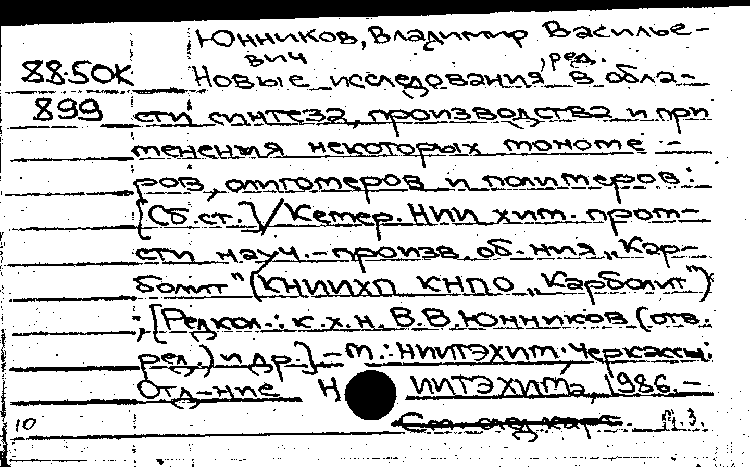 Юнников, Владимир Василье-
вич , ред.
88-50К Новые исследования в обла-
899 сти синтеза, производства и при
менения некоторых мономе-
ров, олигомеров и полимеров:
[Сб. ст.] / Кемер. НИИ хим. пром-
сти науч.-произв. об-ния „Кар-
болит" (КНИИХП КНПО „Карболит")
; [Редкол.: к.х.н. В.В. Юнников (отв.
ред.) и др.] - М.: НИИТЭХИМ: Черкассы:
Отд-ние НИИТЭХИМа, 1986.-
10 См. след. карт. М.З.